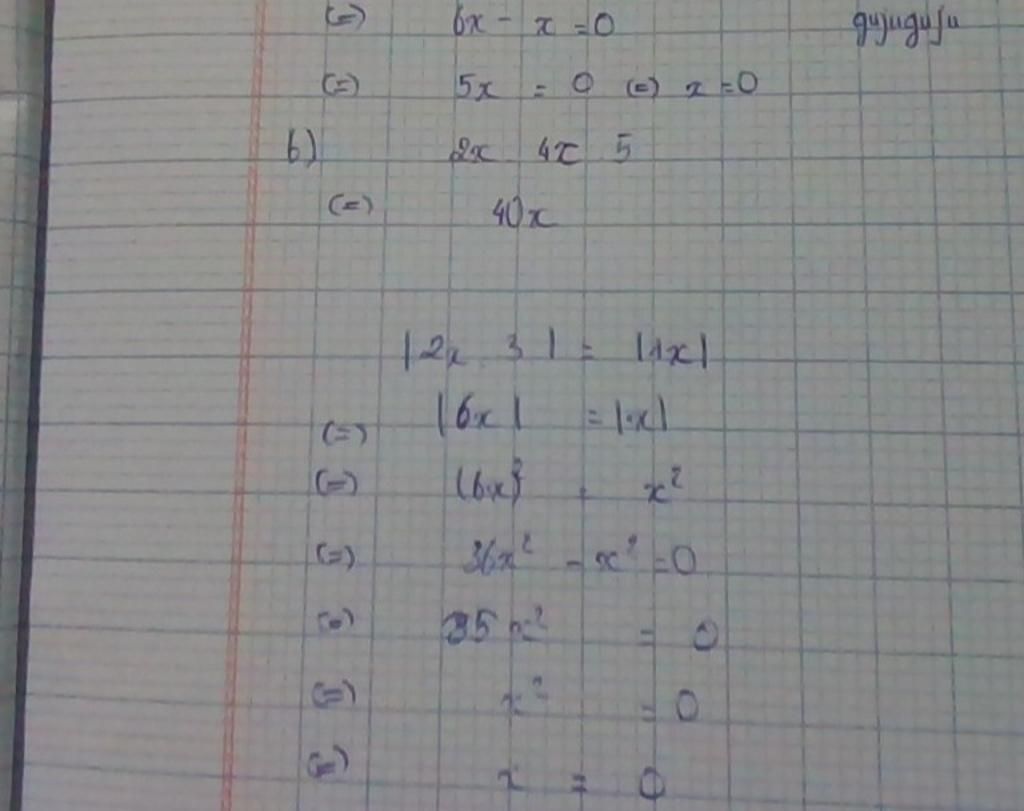 (=) 6x - x = 0 gujuguju
(=) 5x = 0 (=) x = 0
b) 2x 4x 5
(=) 40x
|2x 3| = |1x|
(=) |6x| = |x|
(=) (6x)² x²
(=) 36x² - x² = 0
(=) 35x² = 0
(=) x² = 0
(=) x = 0